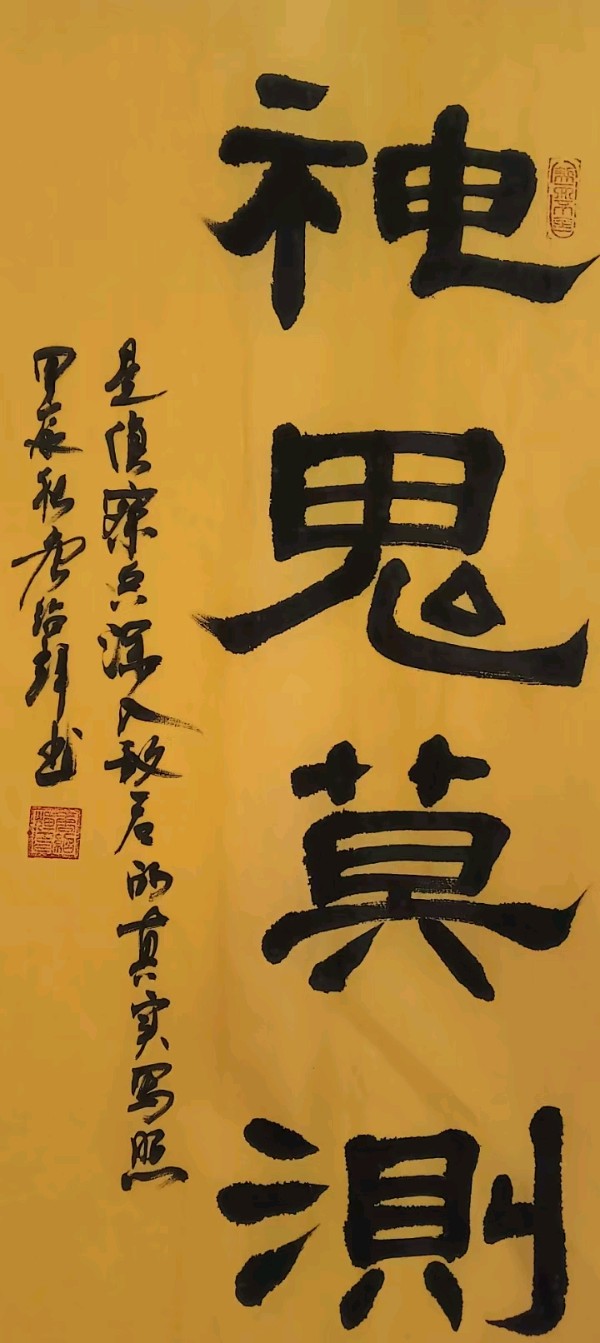 神鬼莫测
是侦察兵深入敌后的真实写照
甲辰秋 书